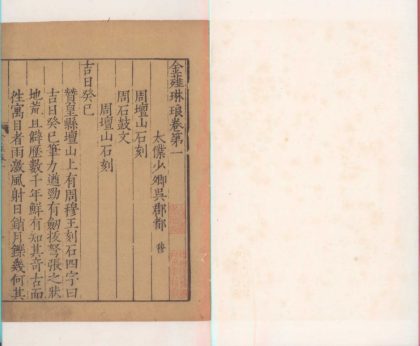 金薤琳琅卷第一
太僕少卿吳郡都 穆
周壇山石刻
周石鼓文
周壇山石刻
吉日癸巳
贊皇縣壇山上有周穆王刻石四字曰
吉日癸巳筆力遒勁有劍拔弩張之狀
地荒且僻歷數千年鮮有知其奇古而
性寓目者雨激風射日銷月鑠幾何其